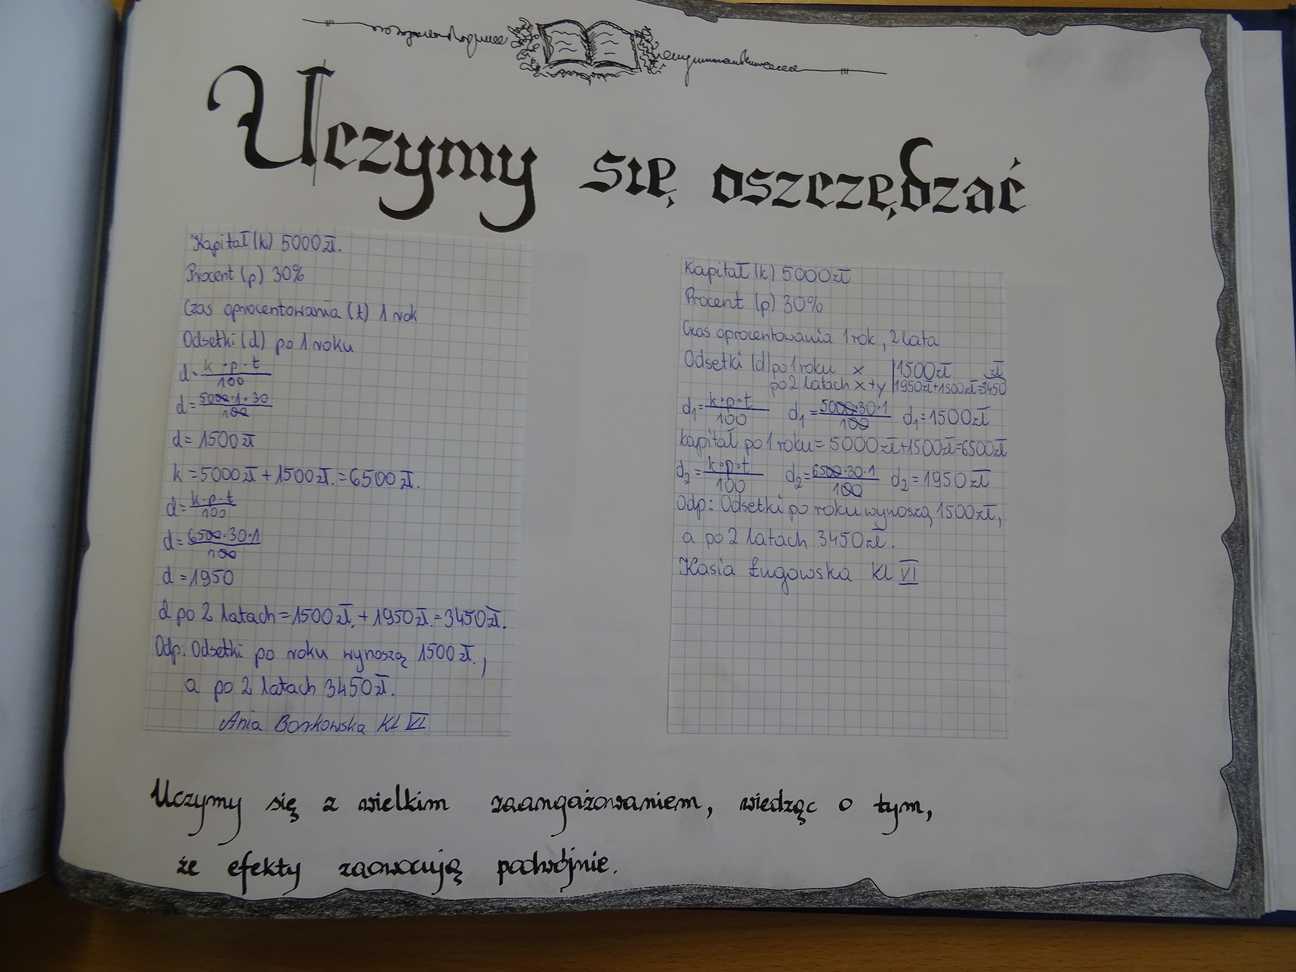 Uczymy się oszczędzać
Kapitał (k) 5000 zł.
Procent (p) 30%
Czas oprocentowania (t) 1 rok
Odsetki (d) po 1 roku
d = k·p·t/100
d = 5000·1·30/100
d = 1500 zł
k = 5000 zł + 1500 zł. = 6500 zł.
d = k·p·t/100
d = 6500·30·1/100
d = 1950
d po 2 latach = 1500 zł. + 1950 zł. = 3450 zł.
Odp. Odsetki po roku wynoszą 1500 zł.,
a po 2 latach 3450 zł.
Ania Borkowska Kl VI
Kapitał (k) 5000 zł
Procent (p) 30%
Czas oprocentowania 1 rok, 2 lata
Odsetki (d) po 1 roku x 1500 zł zł
po 2 latach x+y 1950 zł + 1500 zł = 3450
d₁ = k·p·t/100 d₁ = 5000·30·1/100 d₁ = 1500 zł
kapitał po 1 roku = 5000 zł + 1500 zł = 6500 zł
d₂ = k·p·t/100 d₂ = 6500·30·1/100 d₂ = 1950 zł
Odp: Odsetki po roku wynoszą 1500 zł,
a po 2 latach 3450 zł.
Kasia Ługowska Kl VI
Uczymy się z wielkim zaangażowaniem, wiedząc o tym,
że efekty zaowocują podwójnie.